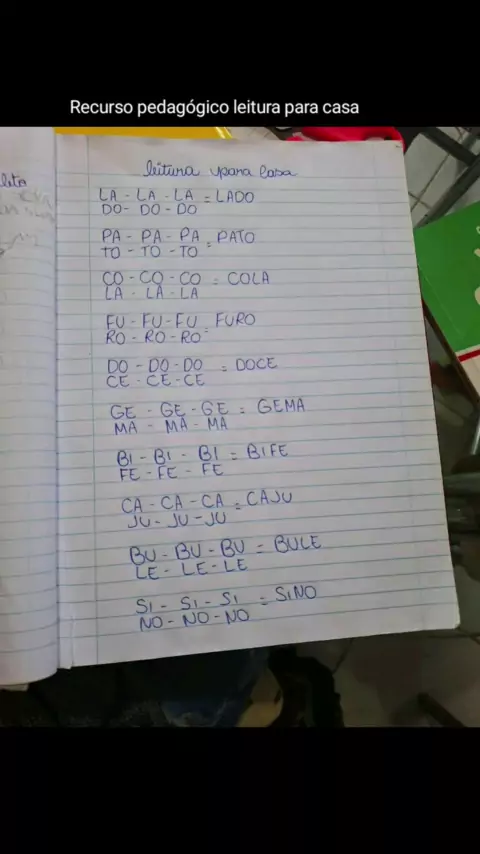 Recurso pedagógico leitura para casa
leitura para casa
LA - LA - LA = LADO
DO - DO - DO
PA - PA - PA = PATO
TO - TO - TO
CO - CO - CO = COLA
LA - LA - LA
FU - FU - FU = FURO
RO - RO - RO
DO - DO - DO = DOCE
CE - CE - CE
GE - GE - GE = GEMA
MA - MA - MA
BI - BI - BI = BIFE
FE - FE - FE
CA - CA - CA = CAJU
JU - JU - JU
BU - BU - BU = BULE
LE - LE - LE
SI - SI - SI = SINO
NO - NO - NO